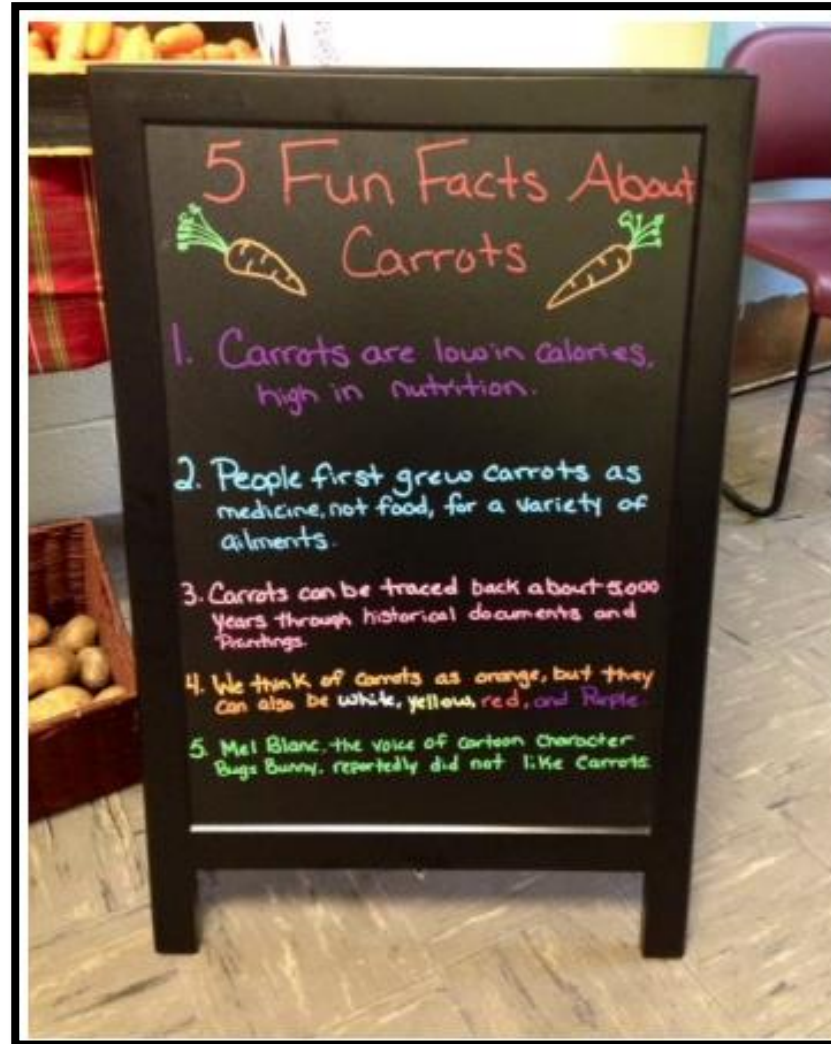 5 Fun Facts About
Carrots
1. Carrots are low in calories,
high in nutrition.
2. People first grew carrots as
medicine, not food, for a variety of
ailments.
3. Carrots can be traced back about 5,000
years through historical documents and
Paintings.
4. We think of carrots as orange, but they
can also be white, yellow, red, and Purple.
5. Mel Blanc, the voice of cartoon character
Bugs Bunny, reportedly did not like Carrots.